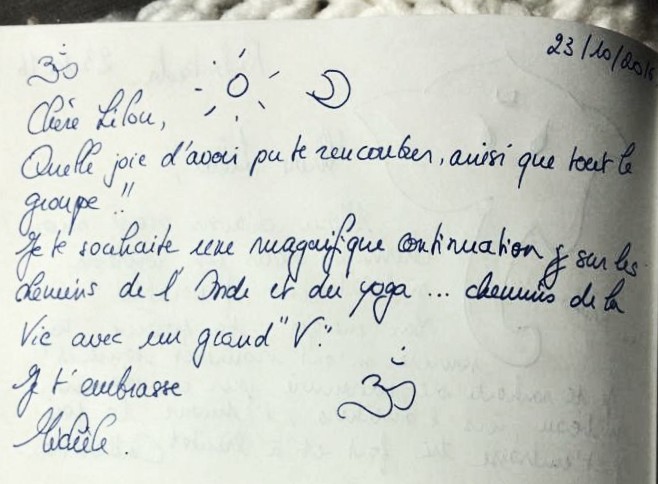 23/10/201
ॐ
Chère Lilou,
Quelle joie d'avoir pu te rencontrer, ainsi que tout le
groupe !!
Je te souhaite une magnifique continuation sur les
chemins de l'Inde et du yoga ... chemins de la
Vie avec un grand "V".
Je t'embrasse
Michèle.
ॐ